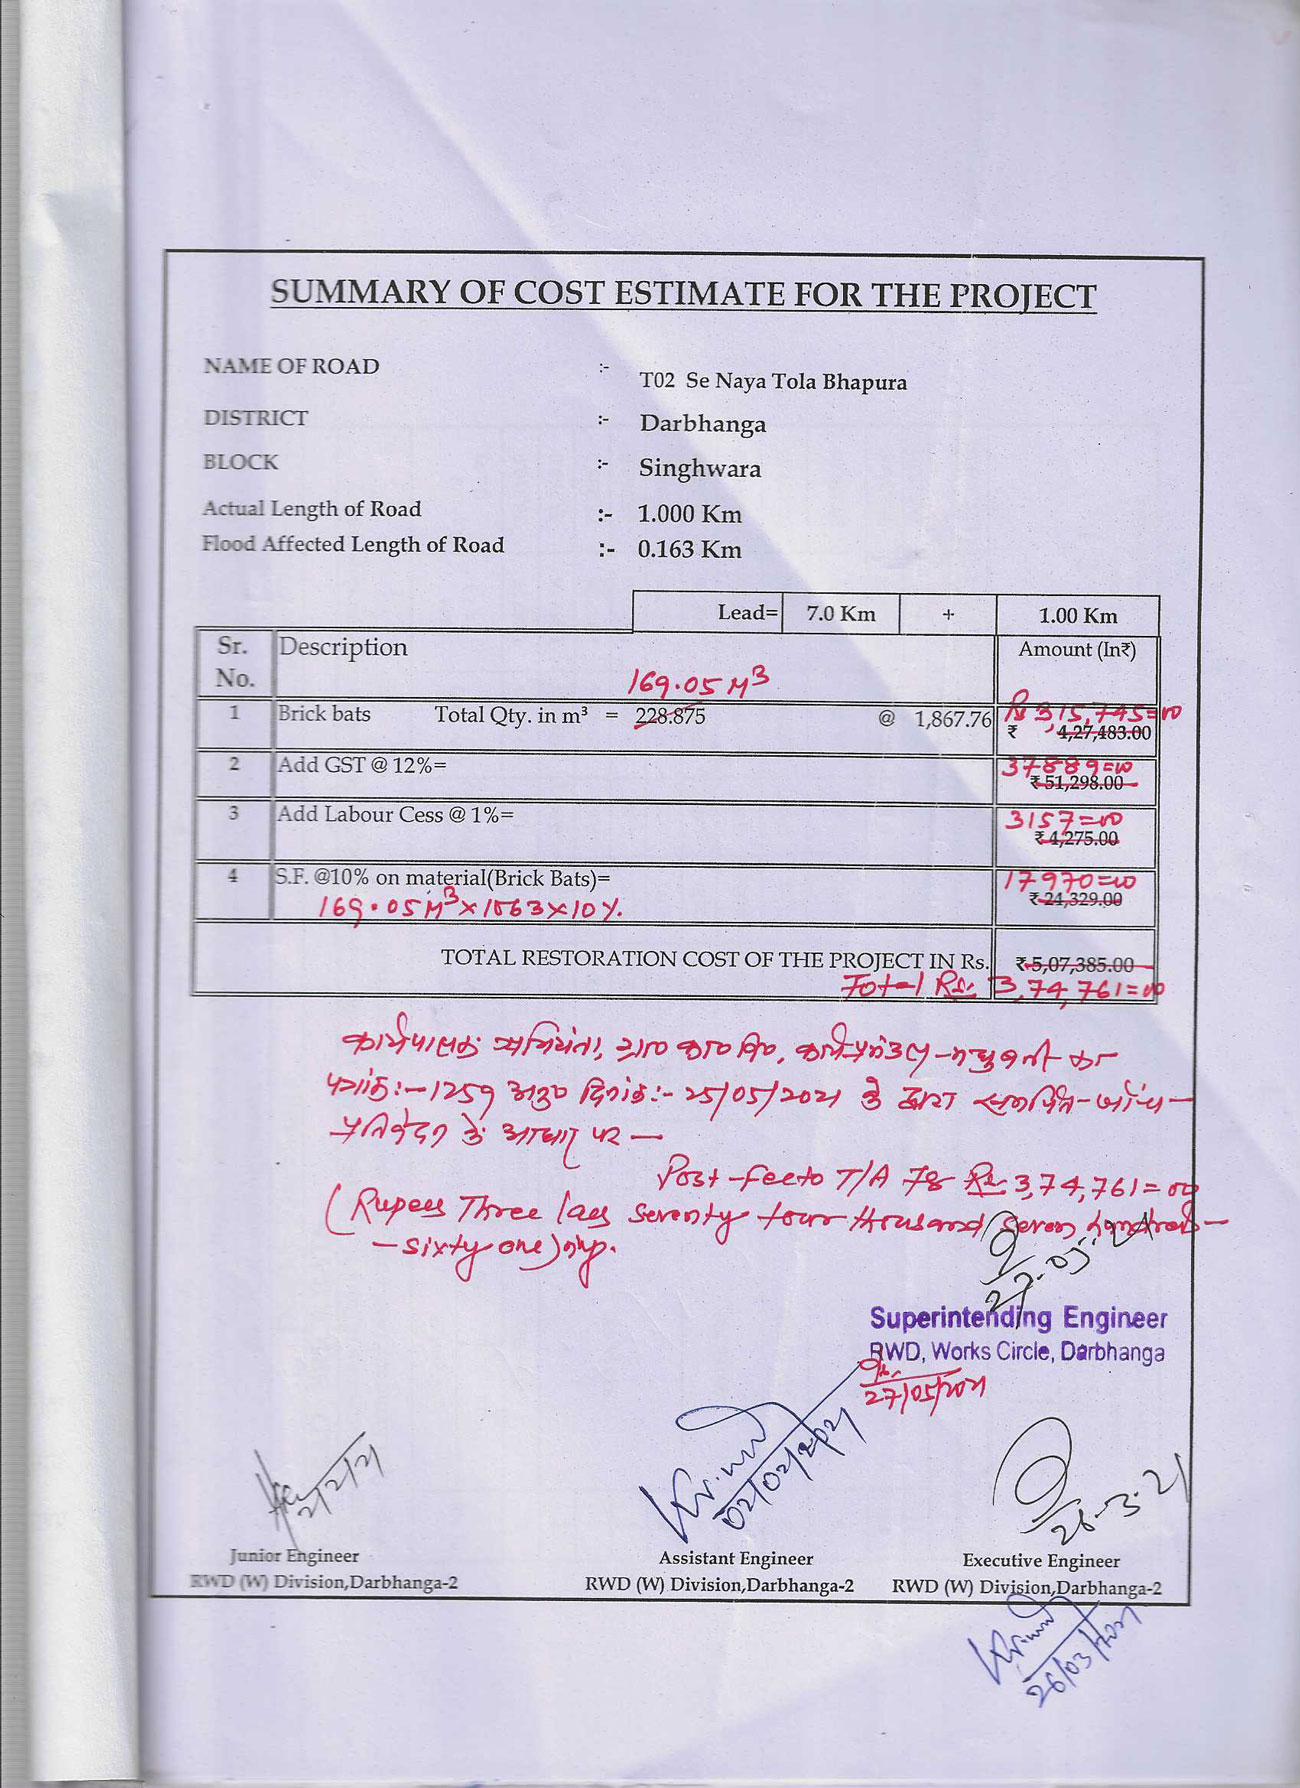 SUMMARY OF COST ESTIMATE FOR THE PROJECT
NAME OF ROAD :- T02 Se Naya Tola Bhapura
DISTRICT :- Darbhanga
BLOCK :- Singhwara
Actual Length of Road :- 1.000 Km
Flood Affected Length of Road :- 0.163 Km
Lead= 7.0 Km + 1.00 Km
Sr. No. Description Amount (In₹)
169.05 M³
1 Brick bats Total Qty. in m³ = 228.875 @ 1,867.76 ₹ 4,27,483.00
Rs 315,745=00
2 Add GST @ 12%= ₹ 51,298.00
37889=00
3 Add Labour Cess @ 1%= ₹ 4,275.00
3157=00
4 S.F. @10% on material(Brick Bats)= ₹ 24,329.00
17970=00
169.05 M³×1063×10%.
TOTAL RESTORATION COST OF THE PROJECT IN Rs. ₹ 5,07,385.00
Total Rs. 3,74,761=00
कार्यपालक अभियंता, ग्रा० का० वि०, कार्य प्रमंडल - मधुबनी का
पत्रांक:- 1259 अनु० दिनांक:- 25/05/2021 के द्वारा समर्पित जाँच -
प्रतिवेदन के आधार पर —
T/A Rs 3,74,761=00
(Rupees Three lacs seventy four thousand seven hundred -
- sixty one) only.
27.05.21
Superintending Engineer
RWD, Works Circle, Darbhanga
27/05/2021
2/2/21
02/02/2021
26.3.21
Junior Engineer Assistant Engineer Executive Engineer
RWD (W) Division,Darbhanga-2 RWD (W) Division,Darbhanga-2 RWD (W) Division,Darbhanga-2
26/03/2021